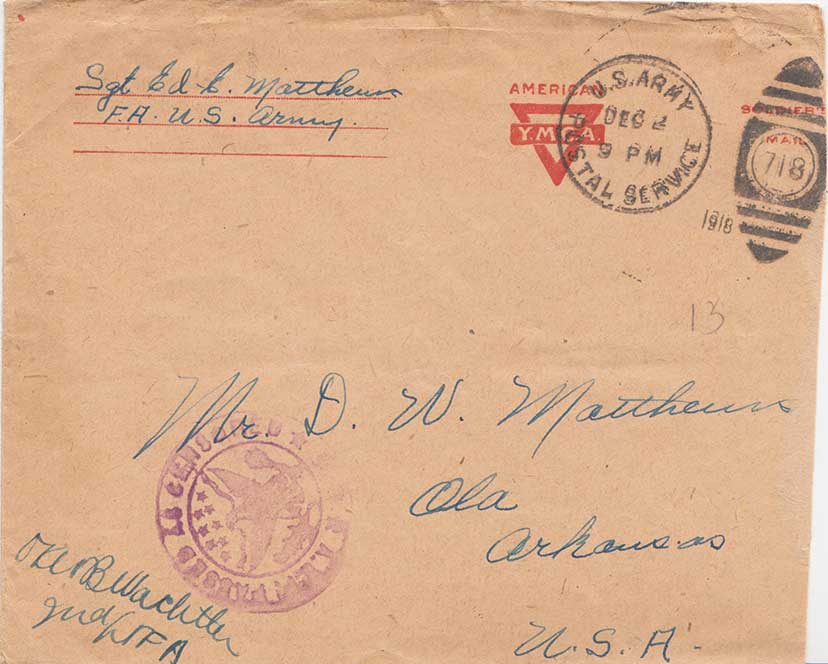 Sgt Ed. C. Matthews
F.A. U.S. Army.
AMERICAN
Y.M.C.A.
U.S. ARMY
POSTAL SERVICE
DEC 2
9 PM
1918
SOLDIER'S
MAIL
718
13
Mr. D. W. Matthews
Ola
Arkansas
U.S.A.
PASSED AS CENSORED
A.E.F.
OK
Wachtler
2nd Lt FA